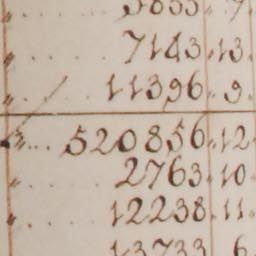 " .... 5855 . 7.
" .... 7143 . 13.
" .... 11396 . 9.
" ... 520856 . 12
" .... 2763 . 10
" .... 12238 . 11.
" .... 13733 . 6